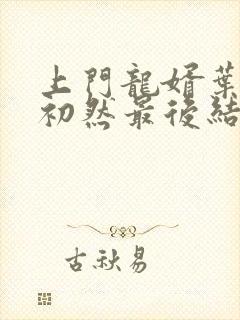 上門龍婿葉
初然最後結
古秋易